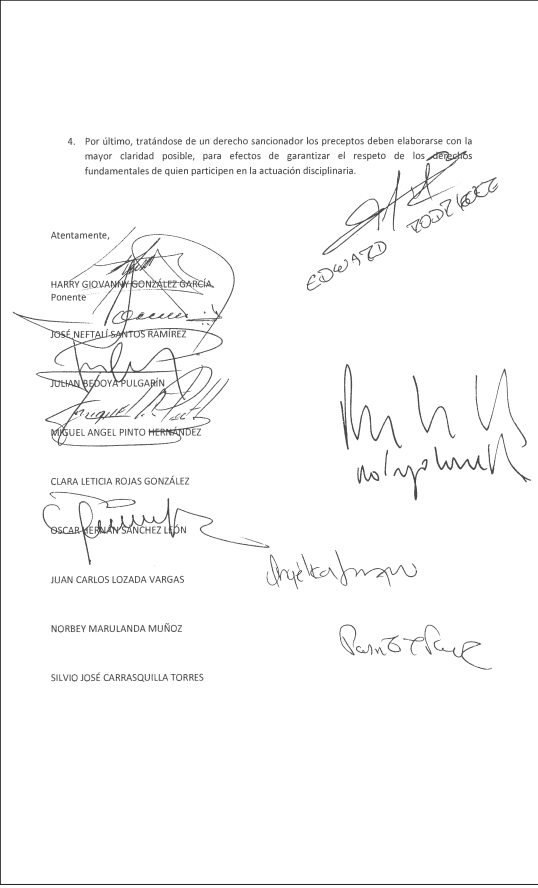 4. Por último, tratándose de un derecho sancionador los preceptos deben elaborarse con la
mayor claridad posible, para efectos de garantizar el respeto de los derechos
fundamentales de quien participen en la actuación disciplinaria.
EDWARD RODRIGUEZ
Atentamente,
HARRY GIOVANNY GONZÁLEZ GARCÍA
Ponente
JOSÉ NEFTALÍ SANTOS RAMÍREZ
JULIAN BEDOYA PULGARÍN
MIGUEL ANGEL PINTO HERNÁNDEZ
CLARA LETICIA ROJAS GONZÁLEZ
OSCAR HERNÁN SÁNCHEZ LEÓN
JUAN CARLOS LOZADA VARGAS
NORBEY MARULANDA MUÑOZ
SILVIO JOSÉ CARRASQUILLA TORRES